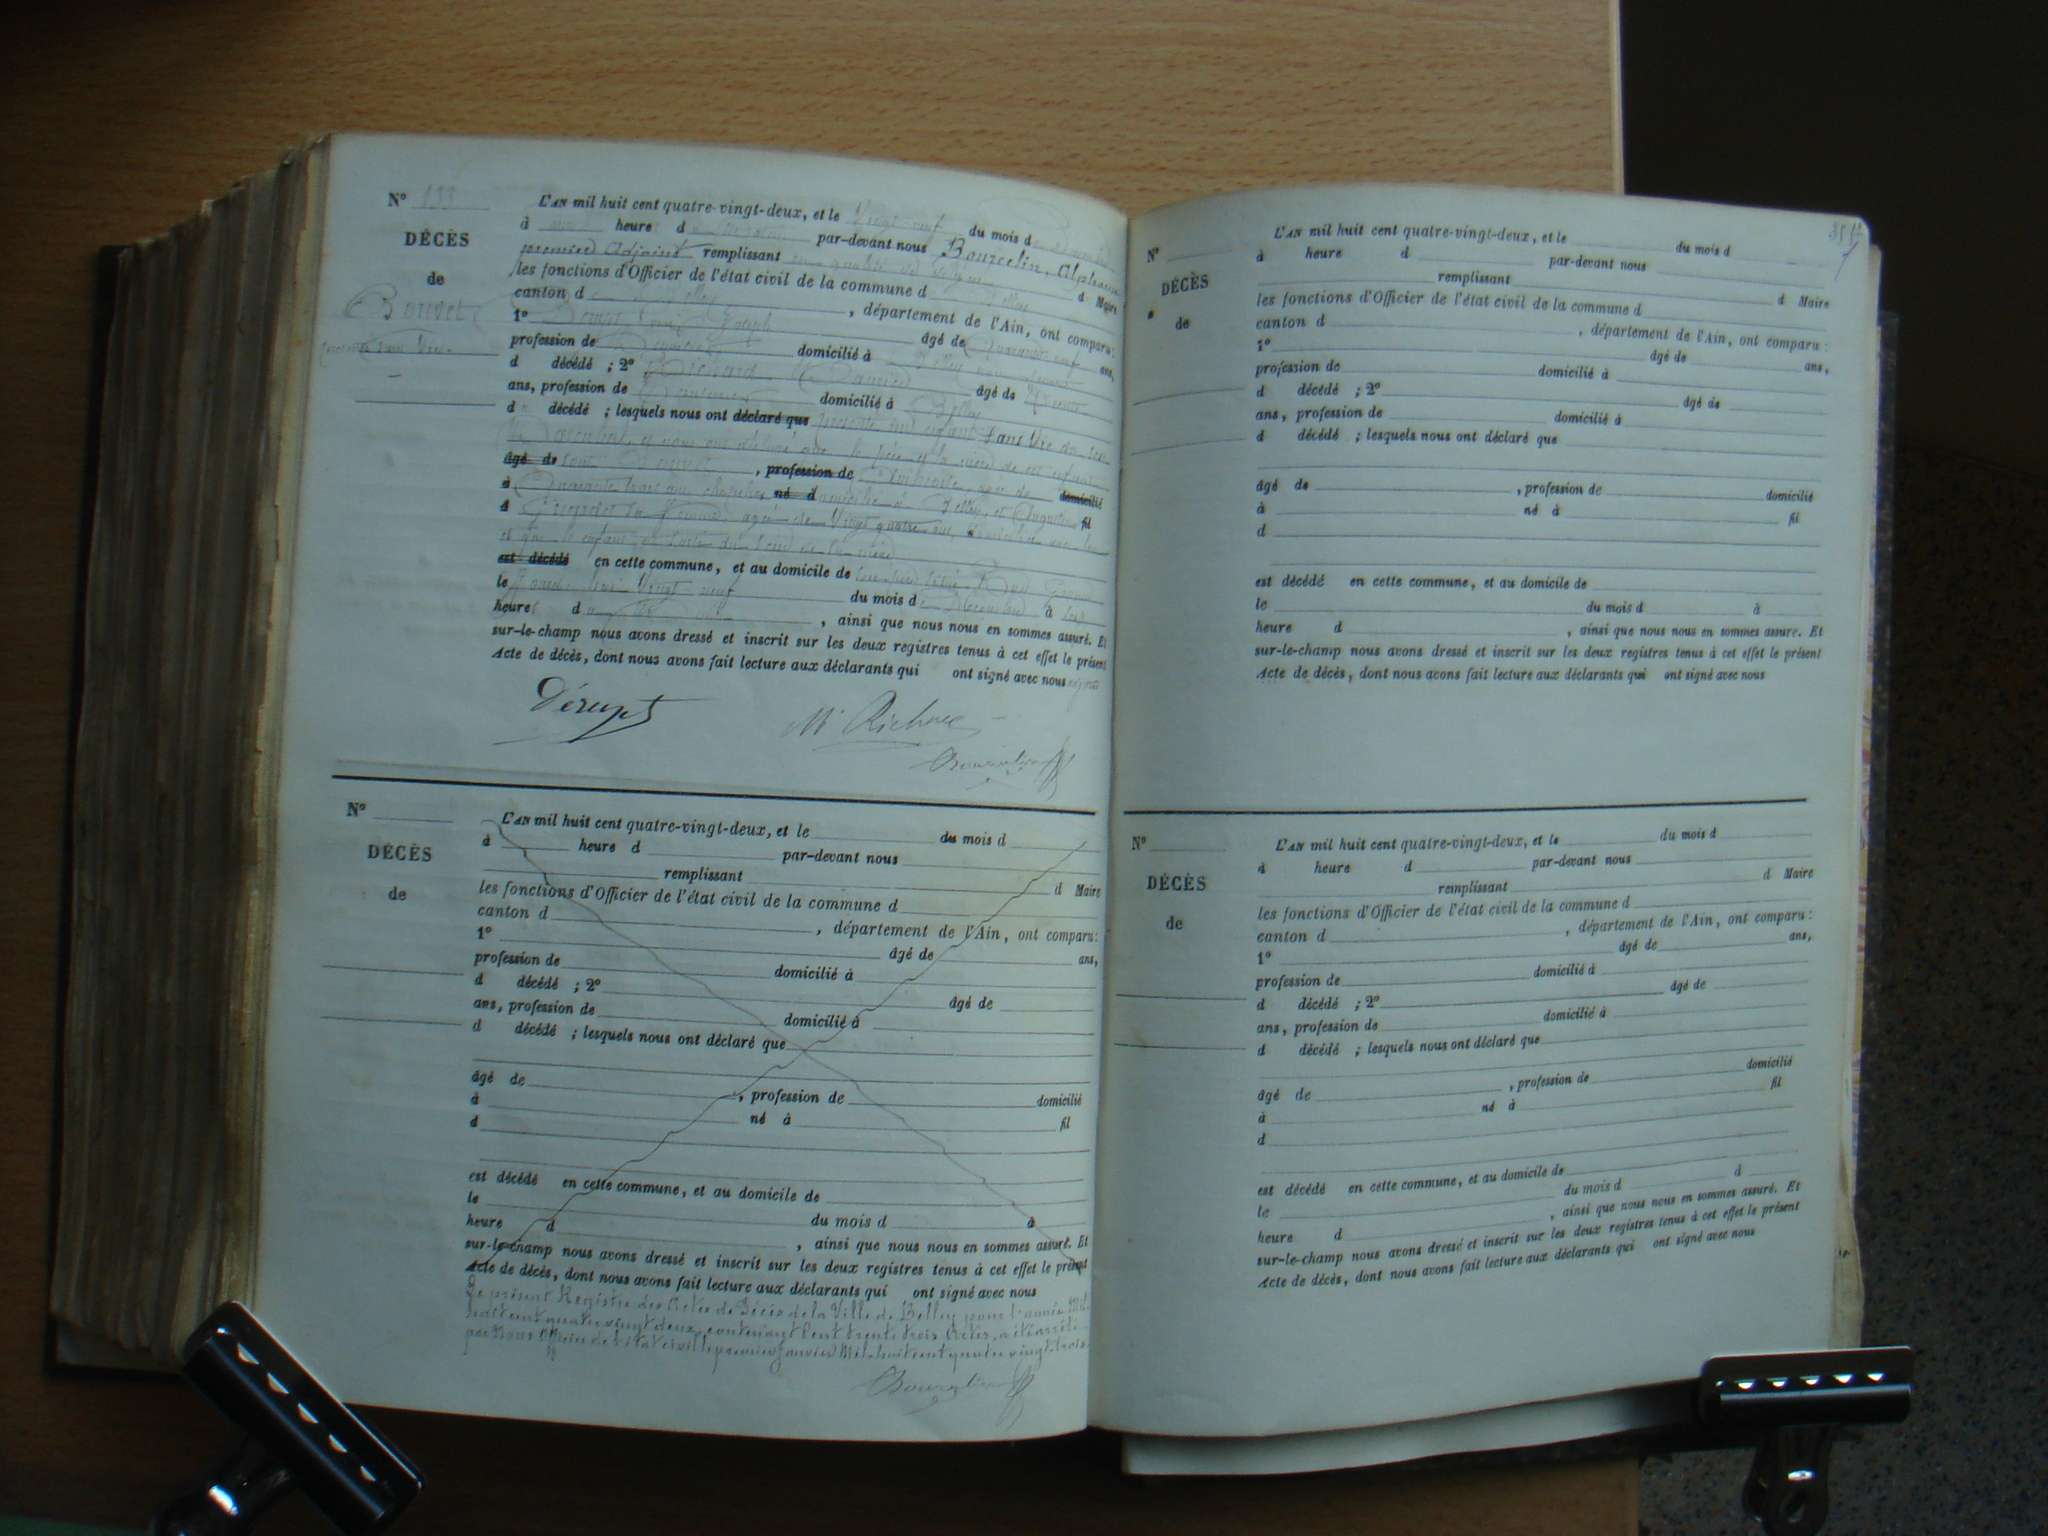 N° 133
DÉCÈS
de
Bouvet
L'AN mil huit cent quatre-vingt-deux, et le Vingt neuf du mois d
à heure d par-devant nous Bourcelin, Alphonse
premier Adjoint remplissant en qualité de d Maire
les fonctions d'Officier de l'état civil de la commune d Belley
canton d Belley, département de l'Ain, ont comparu:
1° Joseph âgé de Quarante ans,
profession de domicilié à Belley
d décédé ; 2° Richard âgé de Trente
ans, profession de domicilié à Belley
d décédé ; lesquels nous ont déclaré que présenté un enfant sans vie du sexe
Masculin, et nous ont déclaré que le père et la mère de cet enfant
âgé de sont Bouvet, profession de âgé de domicilié
à Quarante trois ans né d domicilié à Belley, et fil
d sa femme, agée de Vingt quatre ans,
et que l'enfant est sorti du sein de la mère
est décédé en cette commune, et au domicile de
le Vingt neuf du mois d Décembre à
heure d , ainsi que nous nous en sommes assuré. Et
sur-le-champ nous avons dressé et inscrit sur les deux registres tenus à cet effet le présent
Acte de décès, dont nous avons fait lecture aux déclarants qui ont signé avec nous
Dérupt
M Richard
Bourcelin
N°
DÉCÈS
de
L'AN mil huit cent quatre-vingt-deux, et le du mois d
à heure d par-devant nous
remplissant d Maire
les fonctions d'Officier de l'état civil de la commune d
canton d , département de l'Ain, ont comparu:
1° âgé de ans,
profession de domicilié à
d décédé ; 2° âgé de
ans, profession de domicilié à
d décédé ; lesquels nous ont déclaré que
âgé de , profession de domicilié
à né à fil
d
est décédé en cette commune, et au domicile de
le du mois d à
heure d , ainsi que nous nous en sommes assuré. Et
sur-le-champ nous avons dressé et inscrit sur les deux registres tenus à cet effet le présent
Acte de décès, dont nous avons fait lecture aux déclarants qui ont signé avec nous
Le présent Registre des Actes de Décès de la Ville de Belley pour l'année Mil
huit cent quatre vingt deux, contenant Cent trente trois Actes, a été arrêté
par Nous Officier de l'état civil le premier Janvier Mil huit cent quatre vingt trois
Bourcelin
N°
DÉCÈS
de
L'AN mil huit cent quatre-vingt-deux, et le du mois d
à heure d par-devant nous
remplissant d Maire
les fonctions d'Officier de l'état civil de la commune d
canton d , département de l'Ain, ont comparu :
1° âgé de ans,
profession de domicilié à
d décédé ; 2° âgé de
ans, profession de domicilié à
d décédé ; lesquels nous ont déclaré que
âgé de , profession de domicilié
à né à fil
d
est décédé en cette commune, et au domicile de
le du mois d à
heure d , ainsi que nous nous en sommes assuré. Et
sur-le-champ nous avons dressé et inscrit sur les deux registres tenus à cet effet le présent
Acte de décès, dont nous avons fait lecture aux déclarants qui ont signé avec nous
N°
DÉCÈS
de
L'AN mil huit cent quatre-vingt-deux, et le du mois d
à heure d par-devant nous
remplissant d Maire
les fonctions d'Officier de l'état civil de la commune d
canton d , département de l'Ain, ont comparu :
1° âgé de ans,
profession de domicilié à
d décédé ; 2° âgé de
ans, profession de domicilié à
d décédé ; lesquels nous ont déclaré que
âgé de , profession de domicilié
à né à fil
d
est décédé en cette commune, et au domicile de
le du mois d à
heure d , ainsi que nous nous en sommes assuré. Et
sur-le-champ nous avons dressé et inscrit sur les deux registres tenus à cet effet le présent
Acte de décès, dont nous avons fait lecture aux déclarants qui ont signé avec nous